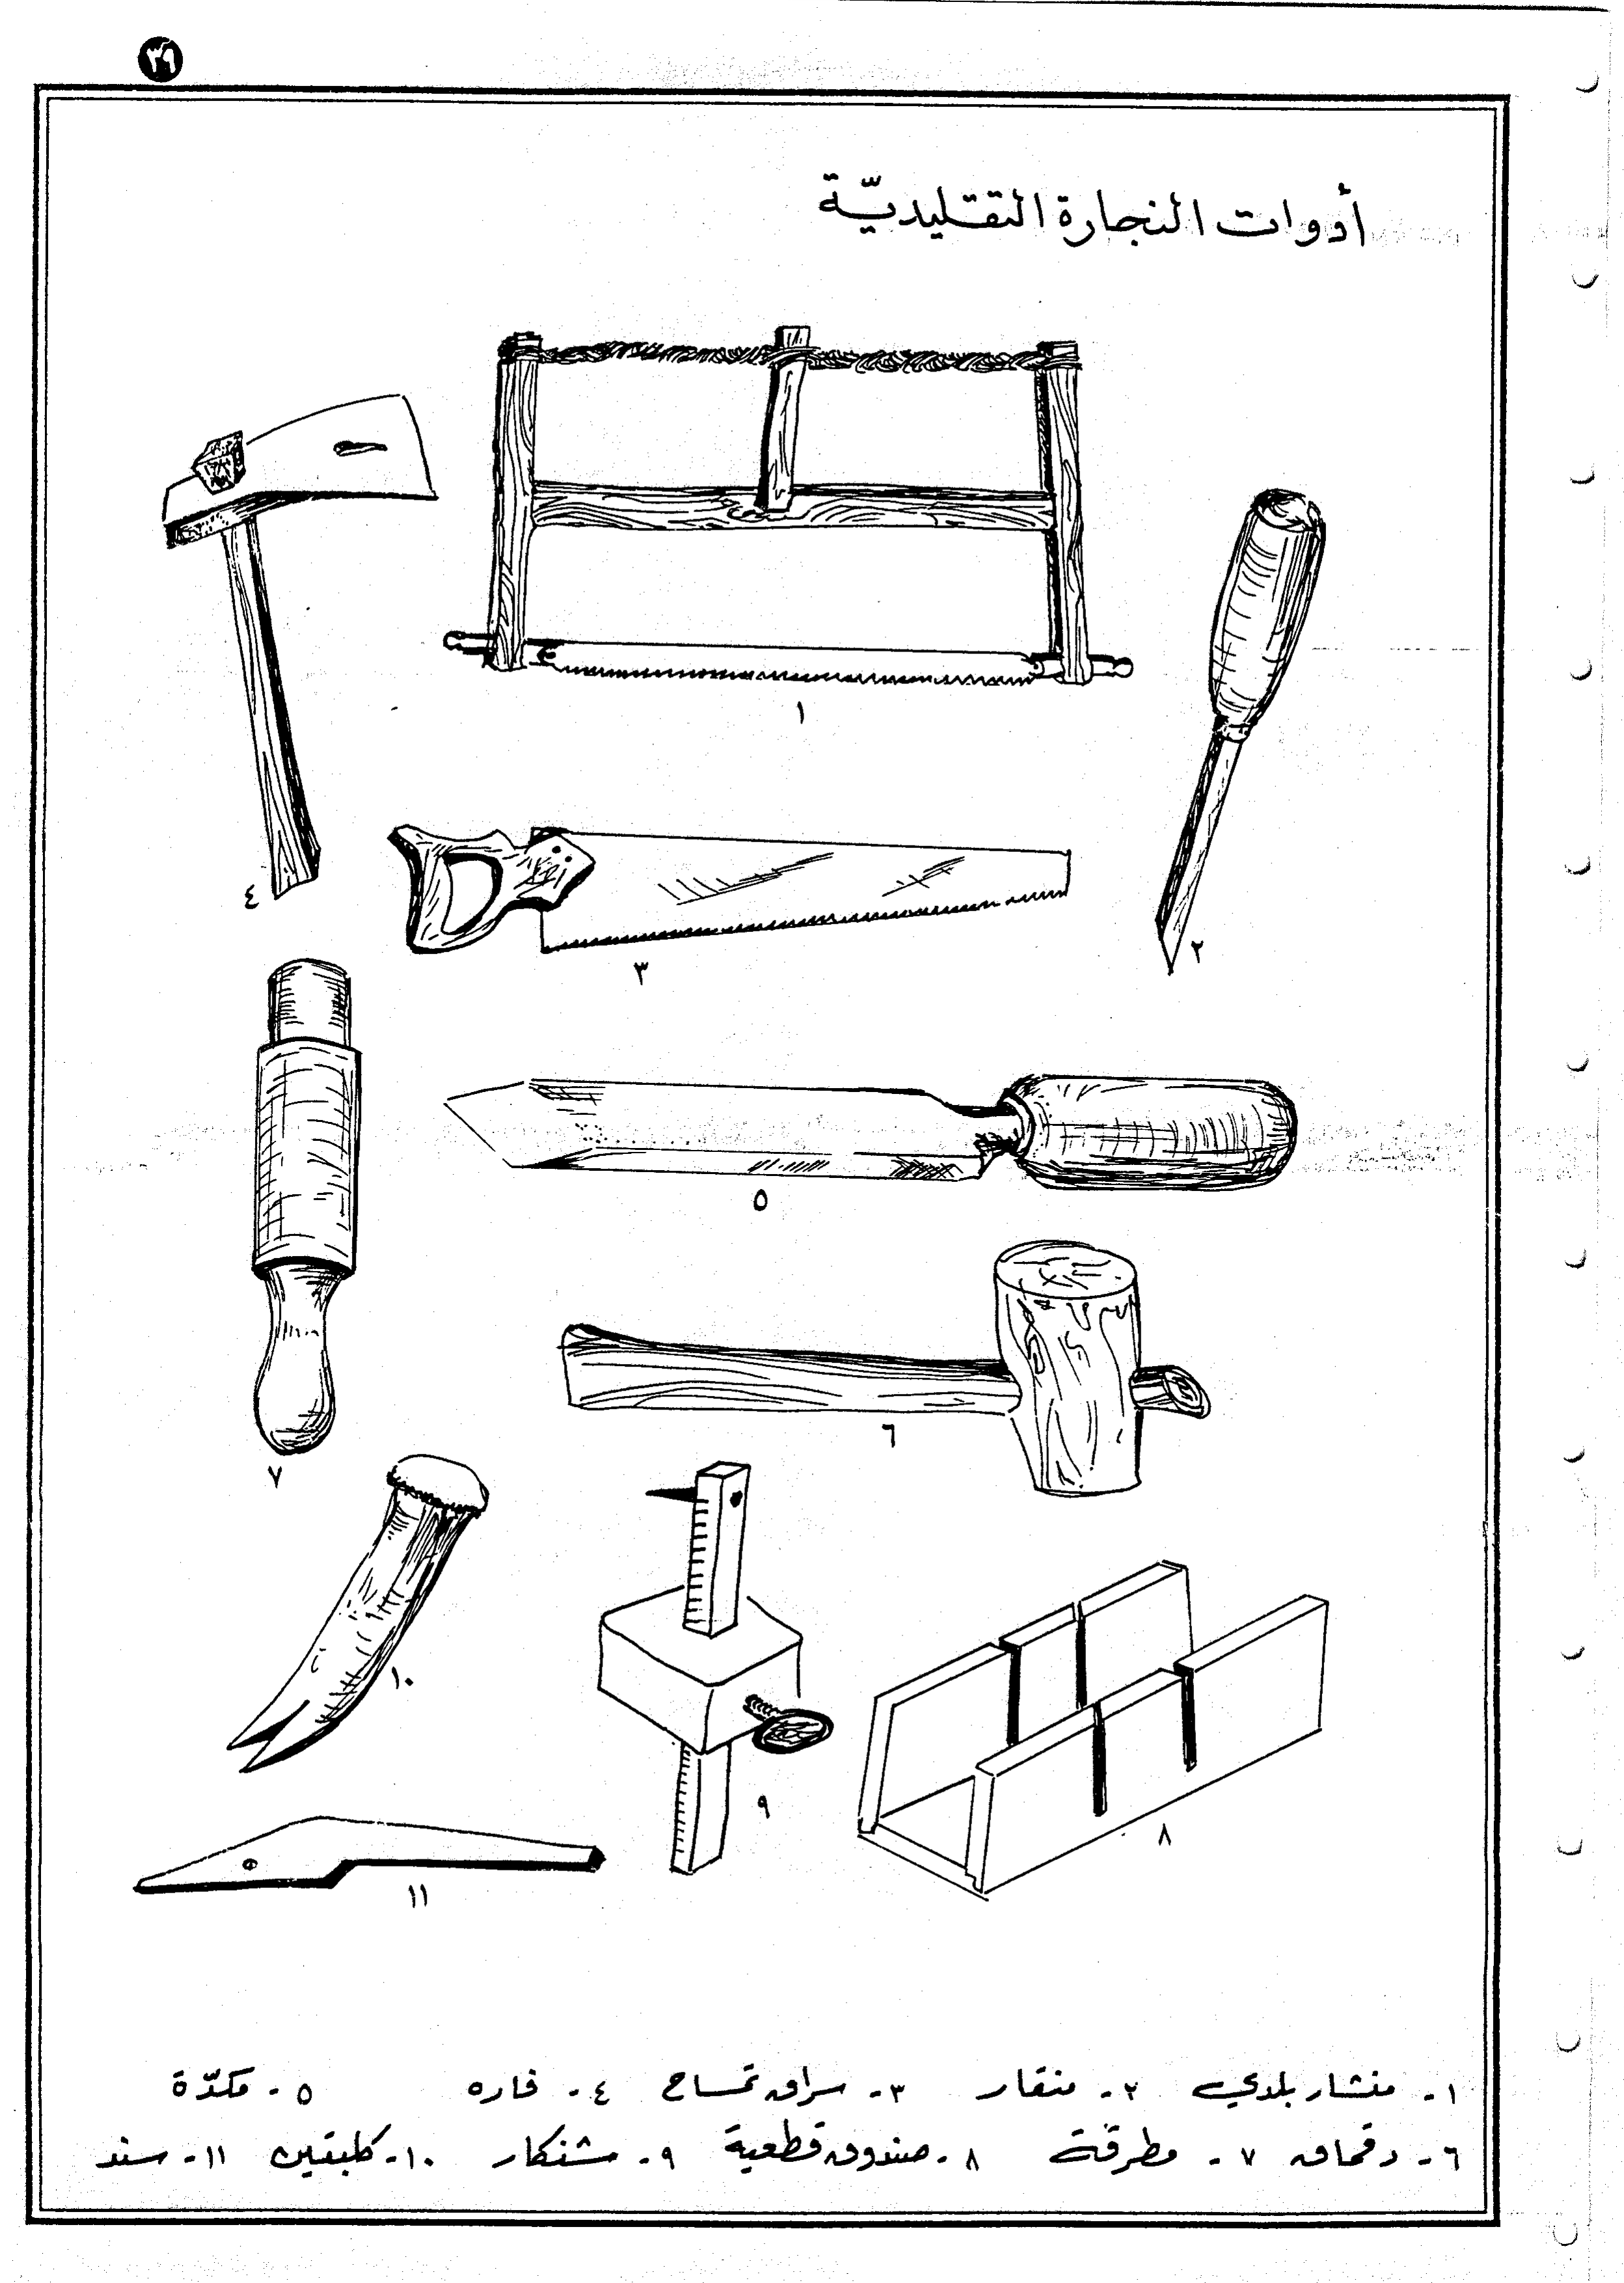 ٣٩
أدوات النجارة التقليديّة
١
٤
٣
٢
٥
٧
٦
١٠
٩
٨
١١
١- منشار بلدي ٢- منقار ٣- سراق تمساح ٤- فاره ٥- مكدّة
٦- دقماق ٧- مطرقة ٨- صندوق قطعية ٩- شنكار ١٠- كلبتين ١١- سند